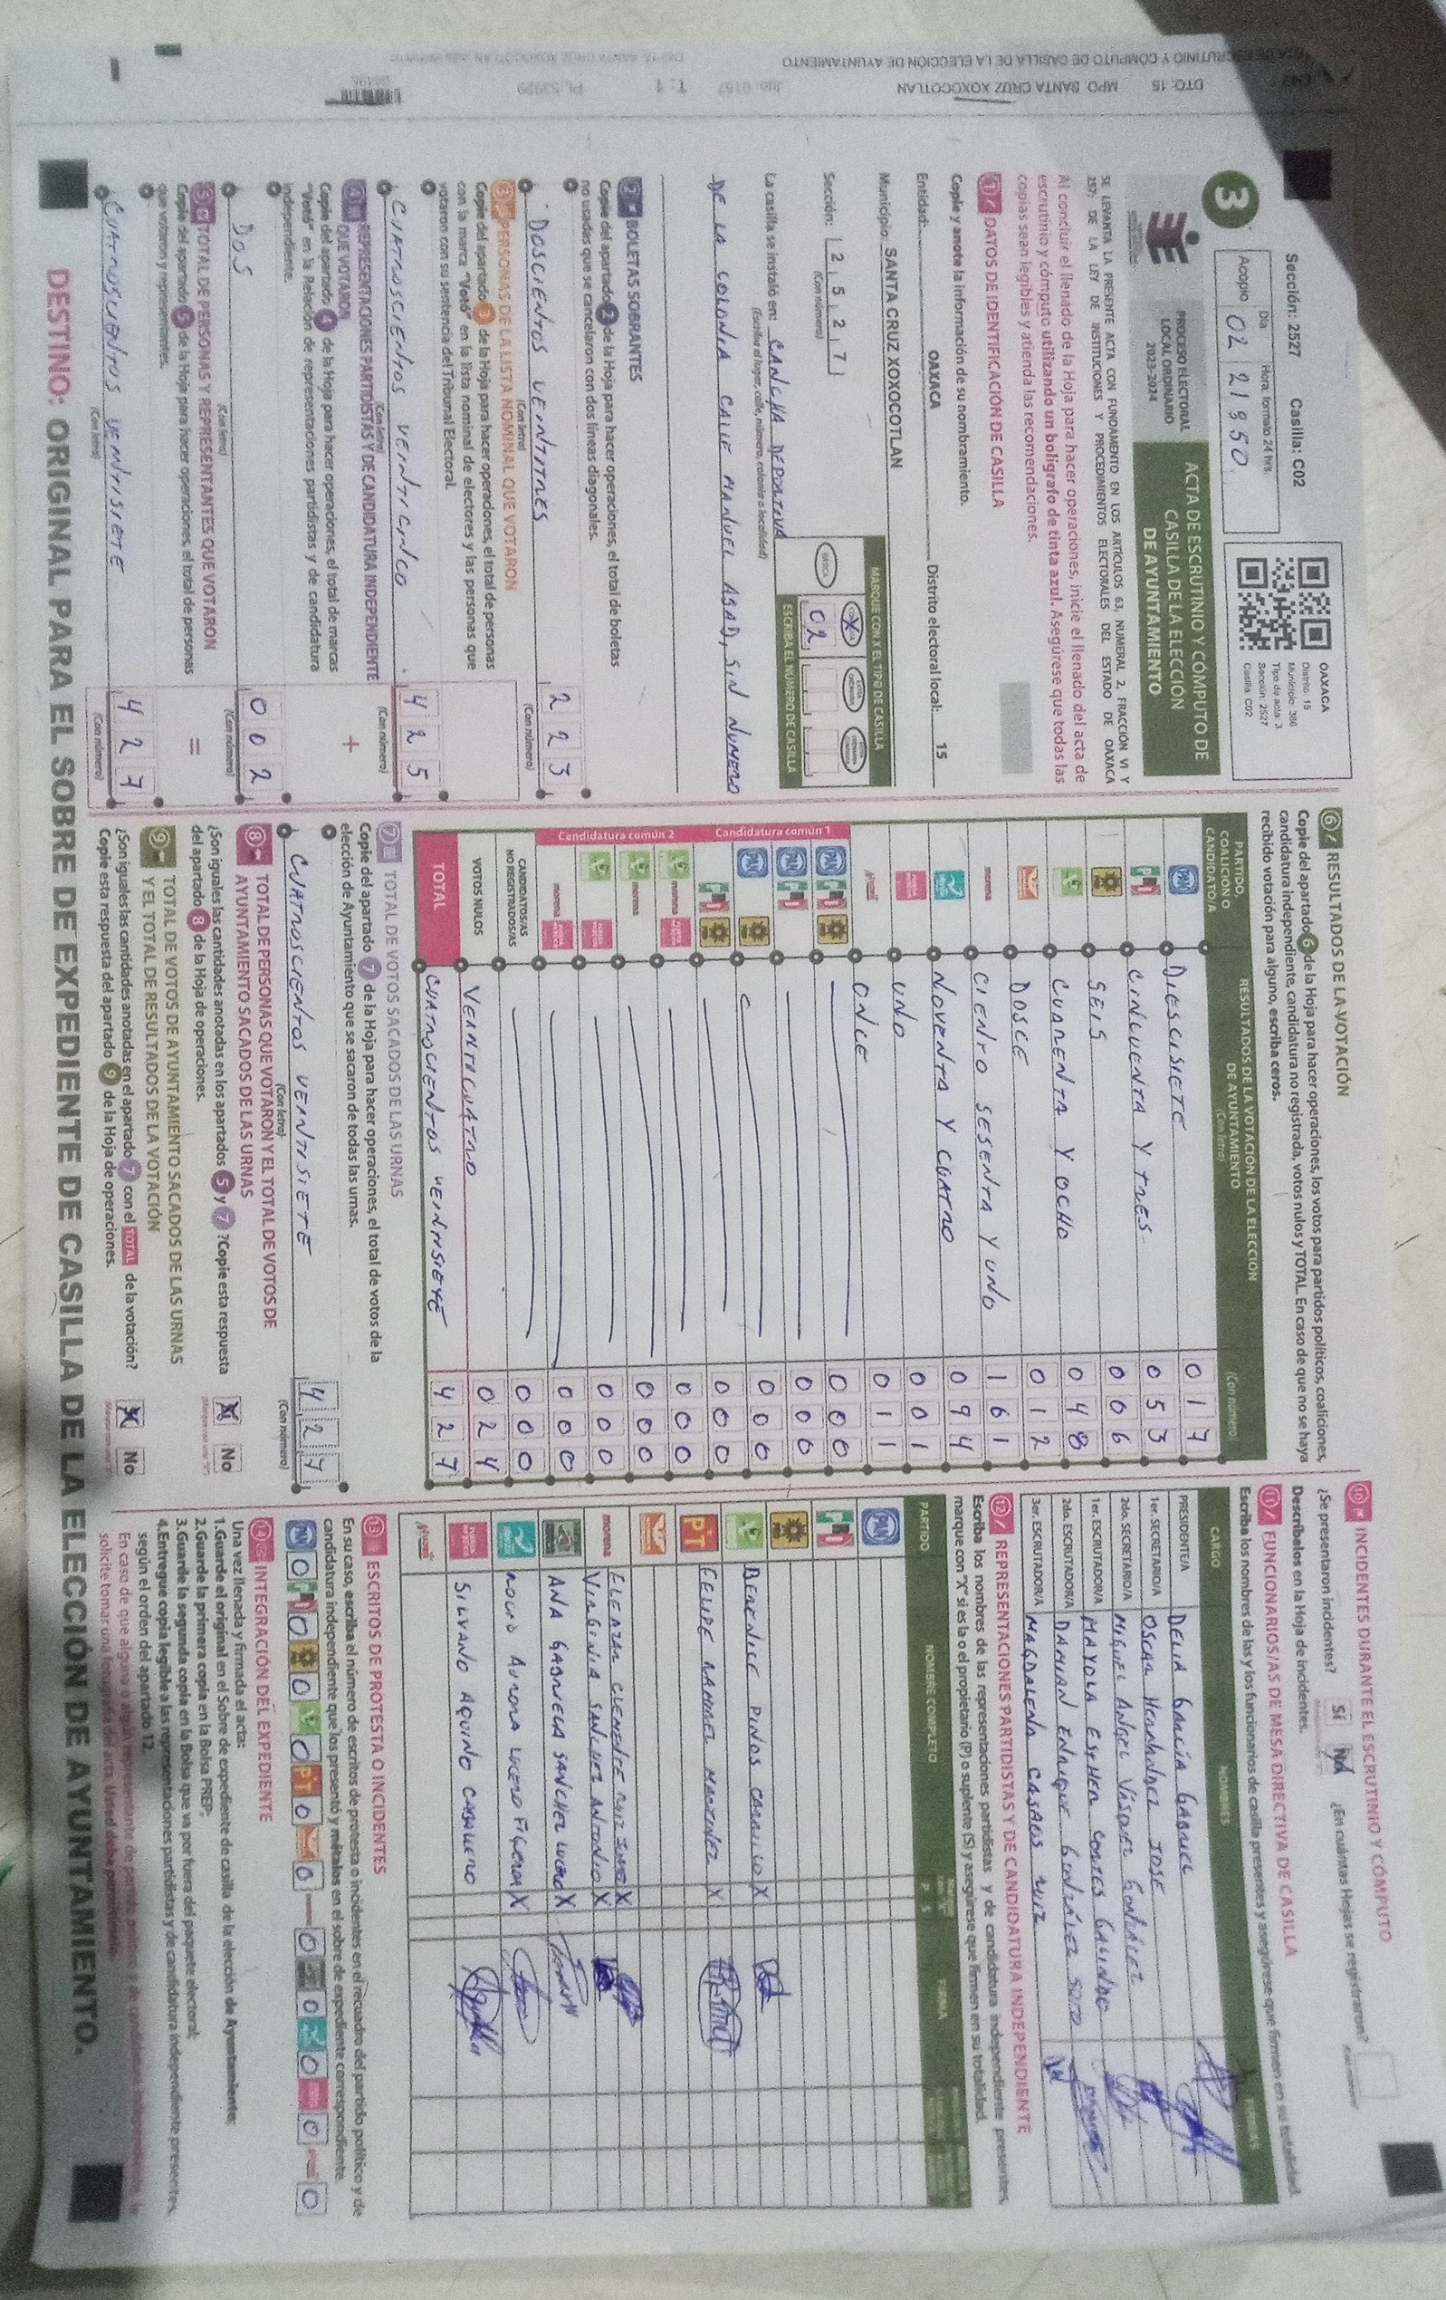 Sección: 2527 Casilla: C02
Día Hora: formato 24 hrs.
Acopio 02 21 50
OAXACA
Distrito: 15
Municipio: 386
Tipo de acta: 3
Sección: 2527
Casilla: C02
3
PROCESO ELECTORAL
LOCAL ORDINARIO
2023-2024
ACTA DE ESCRUTINIO Y CÓMPUTO DE
CASILLA DE LA ELECCIÓN
DE AYUNTAMIENTO
SE LEVANTA LA PRESENTE ACTA CON FUNDAMENTO EN LOS ARTÍCULOS 63, NUMERAL 2, FRACCIÓN VI Y
257; DE LA LEY DE INSTITUCIONES Y PROCEDIMIENTOS ELECTORALES DEL ESTADO DE OAXACA
Al concluir el llenado de la Hoja para hacer operaciones, inicie el llenado del acta de
escrutinio y cómputo utilizando un bolígrafo de tinta azul. Asegúrese que todas las
copias sean legibles y atienda las recomendaciones.
1 DATOS DE IDENTIFICACIÓN DE CASILLA
Copie y anote la información de su nombramiento.
Entidad: OAXACA Distrito electoral local: 15
Municipio: SANTA CRUZ XOXOCOTLAN
MARQUE CON X EL TIPO DE CASILLA
Sección: 2 5 2 7
(Con número)
X
02
ESCRIBA EL NÚMERO DE CASILLA
La casilla se instaló en: CANCHA DEPORTIVA
(Escriba el lugar, calle, número, colonia o localidad)
DE LA COLONIA CALLE MANUEL ASAD, SIN NUMERO
2 BOLETAS SOBRANTES
Copie del apartado 2 de la Hoja para hacer operaciones, el total de boletas
no usadas que se cancelaron con dos líneas diagonales.
DOSCIENTOS VEINTITRES 2 2 3
(Con letra) (Con número)
3 PERSONAS DE LA LISTA NOMINAL QUE VOTARON
Copie del apartado 3 de la Hoja para hacer operaciones, el total de personas
con la marca "Votó" en la lista nominal de electores y las personas que
votaron con su sentencia del Tribunal Electoral.
CUATROSCIENTOS VEINTICINCO 4 2 5
(Con letra) (Con número)
4 REPRESENTACIONES PARTIDISTAS Y DE CANDIDATURA INDEPENDIENTE
QUE VOTARON
Copie del apartado 4 de la Hoja para hacer operaciones, el total de marcas
"Votó" en la Relación de representaciones partidistas y de candidatura
independiente.
+
DOS 0 0 2
(Con letra) (Con número)
5 TOTAL DE PERSONAS Y REPRESENTANTES QUE VOTARON
Copie del apartado 5 de la Hoja para hacer operaciones, el total de personas
que votaron y representantes.
=
CUATROSCIENTOS VEINTISIETE 4 2 7
(Con letra) (Con número)
6 RESULTADOS DE LA VOTACIÓN
Copie del apartado 6 de la Hoja para hacer operaciones, los votos para partidos políticos, coaliciones,
candidatura independiente, candidatura no registrada, votos nulos y TOTAL. En caso de que no se haya
recibido votación para alguno, escriba ceros.
PARTIDO, COALICIÓN O CANDIDATO/A
RESULTADOS DE LA VOTACIÓN DE LA ELECCIÓN
DE AYUNTAMIENTO
(Con letra) (Con número)
PAN DIESCISIETE 0 1 7
PRI CINCUENTA Y TRES 0 5 3
PRD SEIS 0 0 6
CUARENTA Y OCHO 0 4 8
DOSCE 0 1 2
morena CIENTO SESENTA Y UNO 1 6 1
NOVENTA Y CUATRO 0 9 4
UNO 0 0 1
ONCE 0 1 1
Candidatura común 1
PAN PRI PRD 0 0 0
PAN PRI 0 0 0
PAN PRD 0 0 0
PRI PRD 0 0 0
Candidatura común 2
morena 0 0 0
morena 0 0 0
0 0 0
morena 0 0 0
CANDIDATOS/AS
NO REGISTRADOS/AS 0 0 0
VOTOS NULOS VEINTICUATRO 0 2 4
TOTAL CUATROSCIENTOS VEINTISIETE 4 2 7
7 TOTAL DE VOTOS SACADOS DE LAS URNAS
Copie del apartado 7 de la Hoja para hacer operaciones, el total de votos de la
elección de Ayuntamiento que se sacaron de todas las urnas.
CUATROSCIENTOS VEINTISIETE 4 2 7
(Con letra) (Con número)
8 TOTAL DE PERSONAS QUE VOTARON Y EL TOTAL DE VOTOS DE
AYUNTAMIENTO SACADOS DE LAS URNAS
¿Son iguales las cantidades anotadas en los apartados 5 y 7 ? Copie esta respuesta
del apartado 8 de la Hoja de operaciones.
No
9 TOTAL DE VOTOS DE AYUNTAMIENTO SACADOS DE LAS URNAS
Y EL TOTAL DE RESULTADOS DE LA VOTACIÓN
¿Son iguales las cantidades anotadas en el apartado 7 con el TOTAL de la votación?
Copie esta respuesta del apartado 9 de la Hoja de operaciones.
No
10 INCIDENTES DURANTE EL ESCRUTINIO Y CÓMPUTO
¿Se presentaron incidentes? Sí No ¿En cuántas Hojas se registraron?
Descríbalos en la Hoja de incidentes.
11 FUNCIONARIOS/AS DE MESA DIRECTIVA DE CASILLA
Escriba los nombres de las y los funcionarios de casilla presentes y asegúrese que firmen en su totalidad.
CARGO NOMBRES FIRMAS
PRESIDENTE/A DELIA GARCÍA GABRIEL
1er. SECRETARIO/A OSCAR HERNANDEZ JOSE
2do. SECRETARIO/A MIGUEL ANGEL VÁSQUEZ GONZÁLEZ
1er. ESCRUTADOR/A MAYOLA ESTHER CORTES GALINDO
2do. ESCRUTADOR/A DAMIAN ENRIQUE GONZÁLEZ SOTO
3er. ESCRUTADOR/A MAGDALENA CASAOS RUIZ
12 REPRESENTACIONES PARTIDISTAS Y DE CANDIDATURA INDEPENDIENTE
Escriba los nombres de las representaciones partidistas y de candidatura independiente presentes,
marque con "X" si es la o el propietario (P) o suplente (S) y asegúrese que firmen en su totalidad.
PARTIDO NOMBRE COMPLETO P S FIRMA
PAN
PRI
PRD
BERENICE PINOS CARRILLO X
PT FELIPE RAMIREZ MARTINEZ X
morena ELEAZAR CLEMENTE X
VIRGINIA SANCHEZ ANTONIO X
ANA GABRIELA SANCHEZ LUCERO X
ROCIO AURORA LUCERO FIGEROA X
SILVANO AQUINO CABALLERO
13 ESCRITOS DE PROTESTA O INCIDENTES
En su caso, escriba el número de escritos de protesta o incidentes en el recuadro del partido político y de
candidatura independiente que los presentó y métalos en el sobre de expediente correspondiente.
PAN 0 PRI 0 PRD 0 0 PT 0 0 0 0 0 0 0
14 INTEGRACIÓN DEL EXPEDIENTE
Una vez llenada y firmada el acta:
1.Guarde el original en el Sobre de expediente de casilla de la elección de Ayuntamiento;
2.Guarde la primera copia en la Bolsa PREP;
3.Guarde la segunda copia en la Bolsa que va por fuera del paquete electoral;
4.Entregue copia legible a las representaciones partidistas y de candidatura independiente presentes,
según el orden del apartado 12.
DESTINO: ORIGINAL PARA EL SOBRE DE EXPEDIENTE DE CASILLA DE LA ELECCIÓN DE AYUNTAMIENTO.
DTO: 15 MPO: SANTA CRUZ XOXOCOTLAN